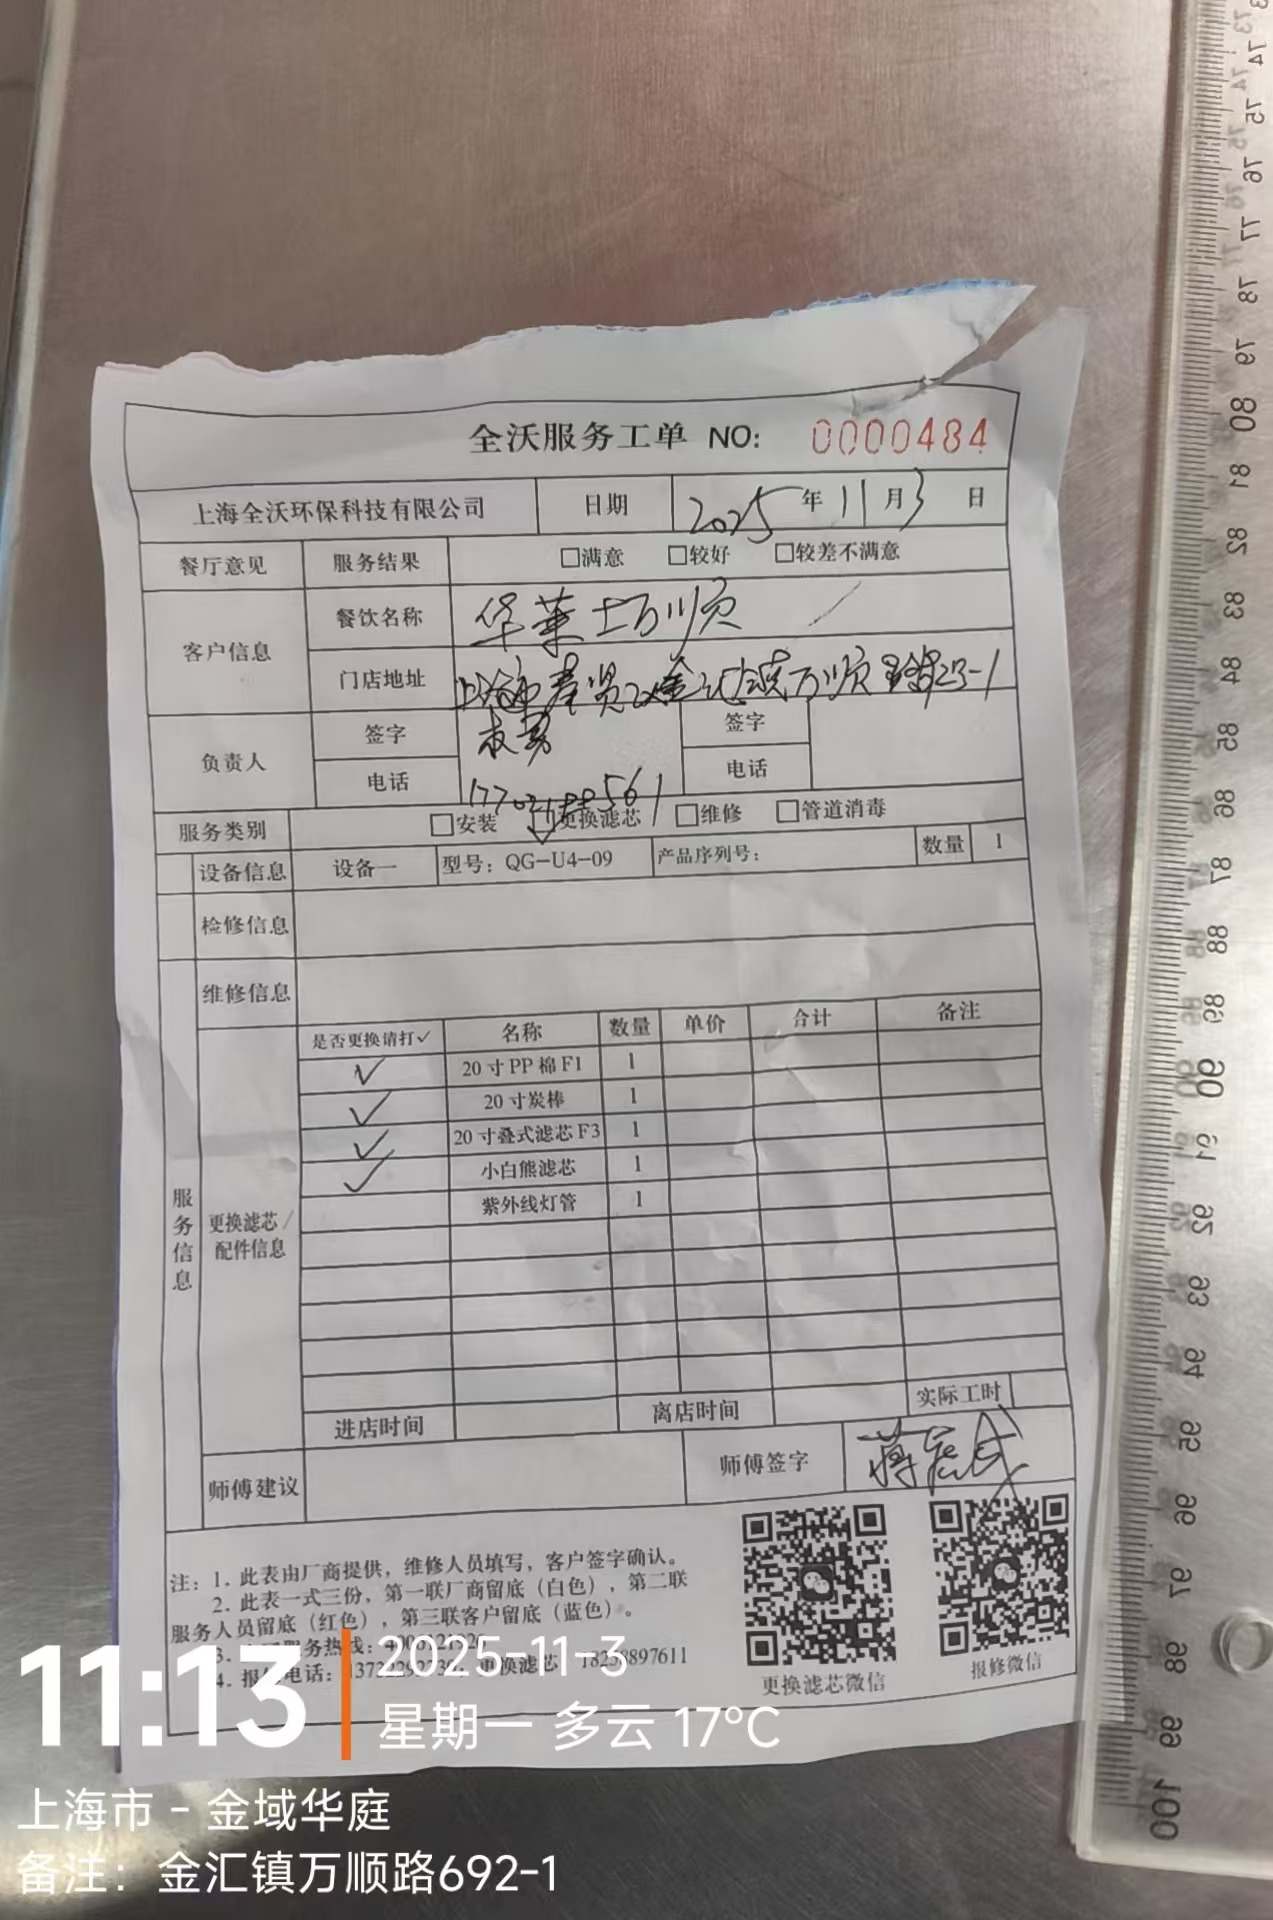 全沃服务工单 NO: 0000484
上海全沃环保科技有限公司 日期 2025年11月3日
餐厅意见 服务结果 □满意 □较好 □较差不满意
客户信息 餐饮名称 华莱士万顺
门店地址 上海市奉贤区金汇镇万顺路
负责人 签字 签字
电话 电话
服务类别 □安装 □更换滤芯 □维修 □管道消毒
设备信息 设备一 型号：QG-U4-09 产品序列号： 数量 1
检修信息
维修信息
是否更换请打✓ 名称 数量 单价 合计 备注
✓ 20寸PP棉F1 1
✓ 20寸炭棒 1
✓ 20寸叠式滤芯F3 1
✓ 小白熊滤芯 1
紫外线灯管 1
服务信息
更换滤芯/
配件信息
进店时间 离店时间 实际工时
师傅建议 师傅签字
注：1. 此表由厂商提供，维修人员填写，客户签字确认。
2. 此表一式三份，第一联厂商留底（白色），第二联
服务人员留底（红色），第三联客户留底（蓝色）。
3. 服务热线：
4. 报修电话： 更换滤芯 18258897611
更换滤芯微信 报修微信
11:13
2025-11-3
星期一 多云 17°C
上海市 - 金域华庭
备注：金汇镇万顺路692-1
73
74
75
76
77
78
79
80
81
82
83
84
85
86
87
88
89
90
91
92
93
94
95
96
97
98
99
100